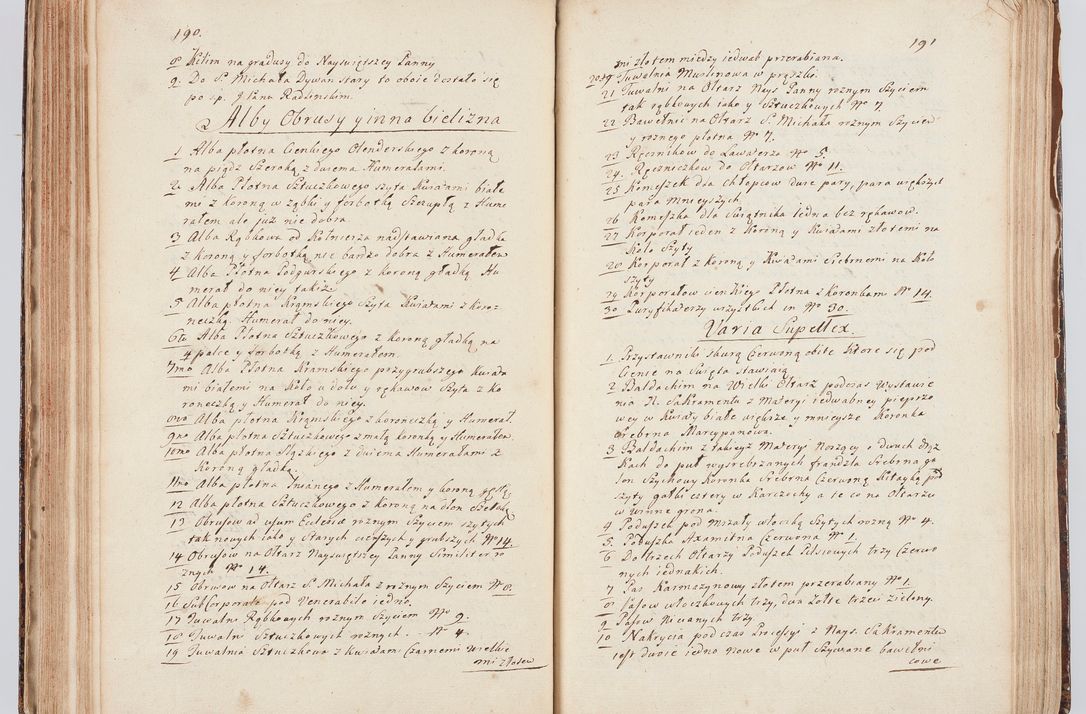 190.
8 Kilim na gradusy do Nayswiętszey Panny
9. Do S. Michała Dywan stary to oboie dostało się
po sp. J. Pana Radzenskim.
Alby Obrusy y inna bielizna
1 Alba płotna Cienkiego Olenderskiego z koroną
na piądz Szeroką z dwiema Humerałami.
2. Alba Płotna Sztuczkowego szyta Kwiatami białe
mi z koroną w ząbki y forbotką Szeruplą z Hume
rałem ale juz nie dobra
3 Alba Rąbkowa od Kołnierza nadstawiana gładka
z koroną y forbotką nie bardzo dobra z Humerałem
4 Alba Płotna Podgurskiego z koroną gładką Hu
merał do niey takiż
5 Alba płotna Kramskiego Szyta Kwiatami z koro=
neczką. Humerał do niey.
6ta Alba Płotna Sztuczkowego z koroną gładką na
4 palce y forbotką z Humerałem.
7mo Alba Płotna Kramskiego przygrubszego Kwiata
mi białemi na Koło u dołu y rękawow Szyta z ko
roneczką y Humerał do niey.
8vo Alba płotna Kramskiego z koroneczką y Humerał.
9no Alba płotna Sztuczkowego z małą koronką y Humerałem.
10mo Alba płotna Sląskiego z dwiema Humerałami z
Koroną gładką.
11mo Alba płotna Lnianego z Humerałem y koroną gęstą
12 Alba płotna Sztuczkowego z koroną na dłon Szeroką
13 Obrusow ad usum Ecclesiæ roznym Szyciem szytych
tak nowych iako y starych cienszych y grubszych No 14.
14 Obrusow na Ołtarz Nayswiętszey Panny Similiter ro
znych No 14.
15 Obrusow na Ołtarz S. Michała z roznym Szyciem No 8.
16 SubCorporale pod Venerabile iedno.
17 Tuwalni Rąbkowych roznym Szyciem No 9.
18 Tuwalni Sztuczkowych roznych. No 4.
19 Tuwalnia Sztuczkowa z kwiatami Czarnemi Wielkie
mi złotem
191
mi złotem między iedwab przerabiana.
20 Tuwalnia Muslinowa w prążki.
21 Tuwalni na Ołtarz Nays. Panny roznym Szyciem
tak rąbkowych iako y Sztuczkowych No 7.
22 Bawełnic na Ołtarz S. Michała roznym Szyciem
y roznego płotna No 7.
23 Ręcznikow do Lawaterza No 5.
24. Ręczniczkow do Ołtarzow No 11.
25 Komeszek dla Chłopcow dwie pary, para większych
para Mnieyszych.
26 Komeszka dla Swiątnika iedna bez rękawow.
27 Korporał ieden z Koroną y Kwiatami złotemi na
Koło Szyty
28 Korporał z koroną y Kwiatami Ciebrnemi na Koło
szyty
29 Korporałow cienkiego Płotna z koronkam No 14.
30 Puryfikaterzy wszystkich in No 30.
Varia Supellex.
1. Przystawniki skurą Czerwoną obite Ktore się pod
Cienie na Swięta stawiaią
2 Baldachim na Wielki Ołtarz podczas Wystawie
nia N. Sakramentu z Materyi iedwabney pieprzo
wey w Kwiaty białe większe y mnieysze Koronka
srebrna Marcypanowa.
3 Baldachim z takieyze Materyi Noszący o dwuch drąz
kach do puł wysrebrzanych frandzla Srebrna ga
lon Szychowy Koronka Srebrna Czerwoną Kitayką pod
szyty gałki cztery w Karczochy a te co na Ołtarzu
w Winne grona.
4 Poduszek pod Mszały włoczką Szytych rozną No 4.
5. Poduszka Axamitna Czerwona No 1.
6 Do trzech Ołtarzy Poduszek Pilsiowych trzy Czerwo
nych iednakich.
7 Pas Karmazynowy złotem przerabiany No 1.
8 Pasow włoczkowych trzy, dwa Zołte trzeci zielony.
9 Pasow Nicianych trzy.
10. Nakrycia podczas Procesyi z Nays. Sakramentu
iest dwoie iedno Nowe w puł Szywane bawełni
cowe